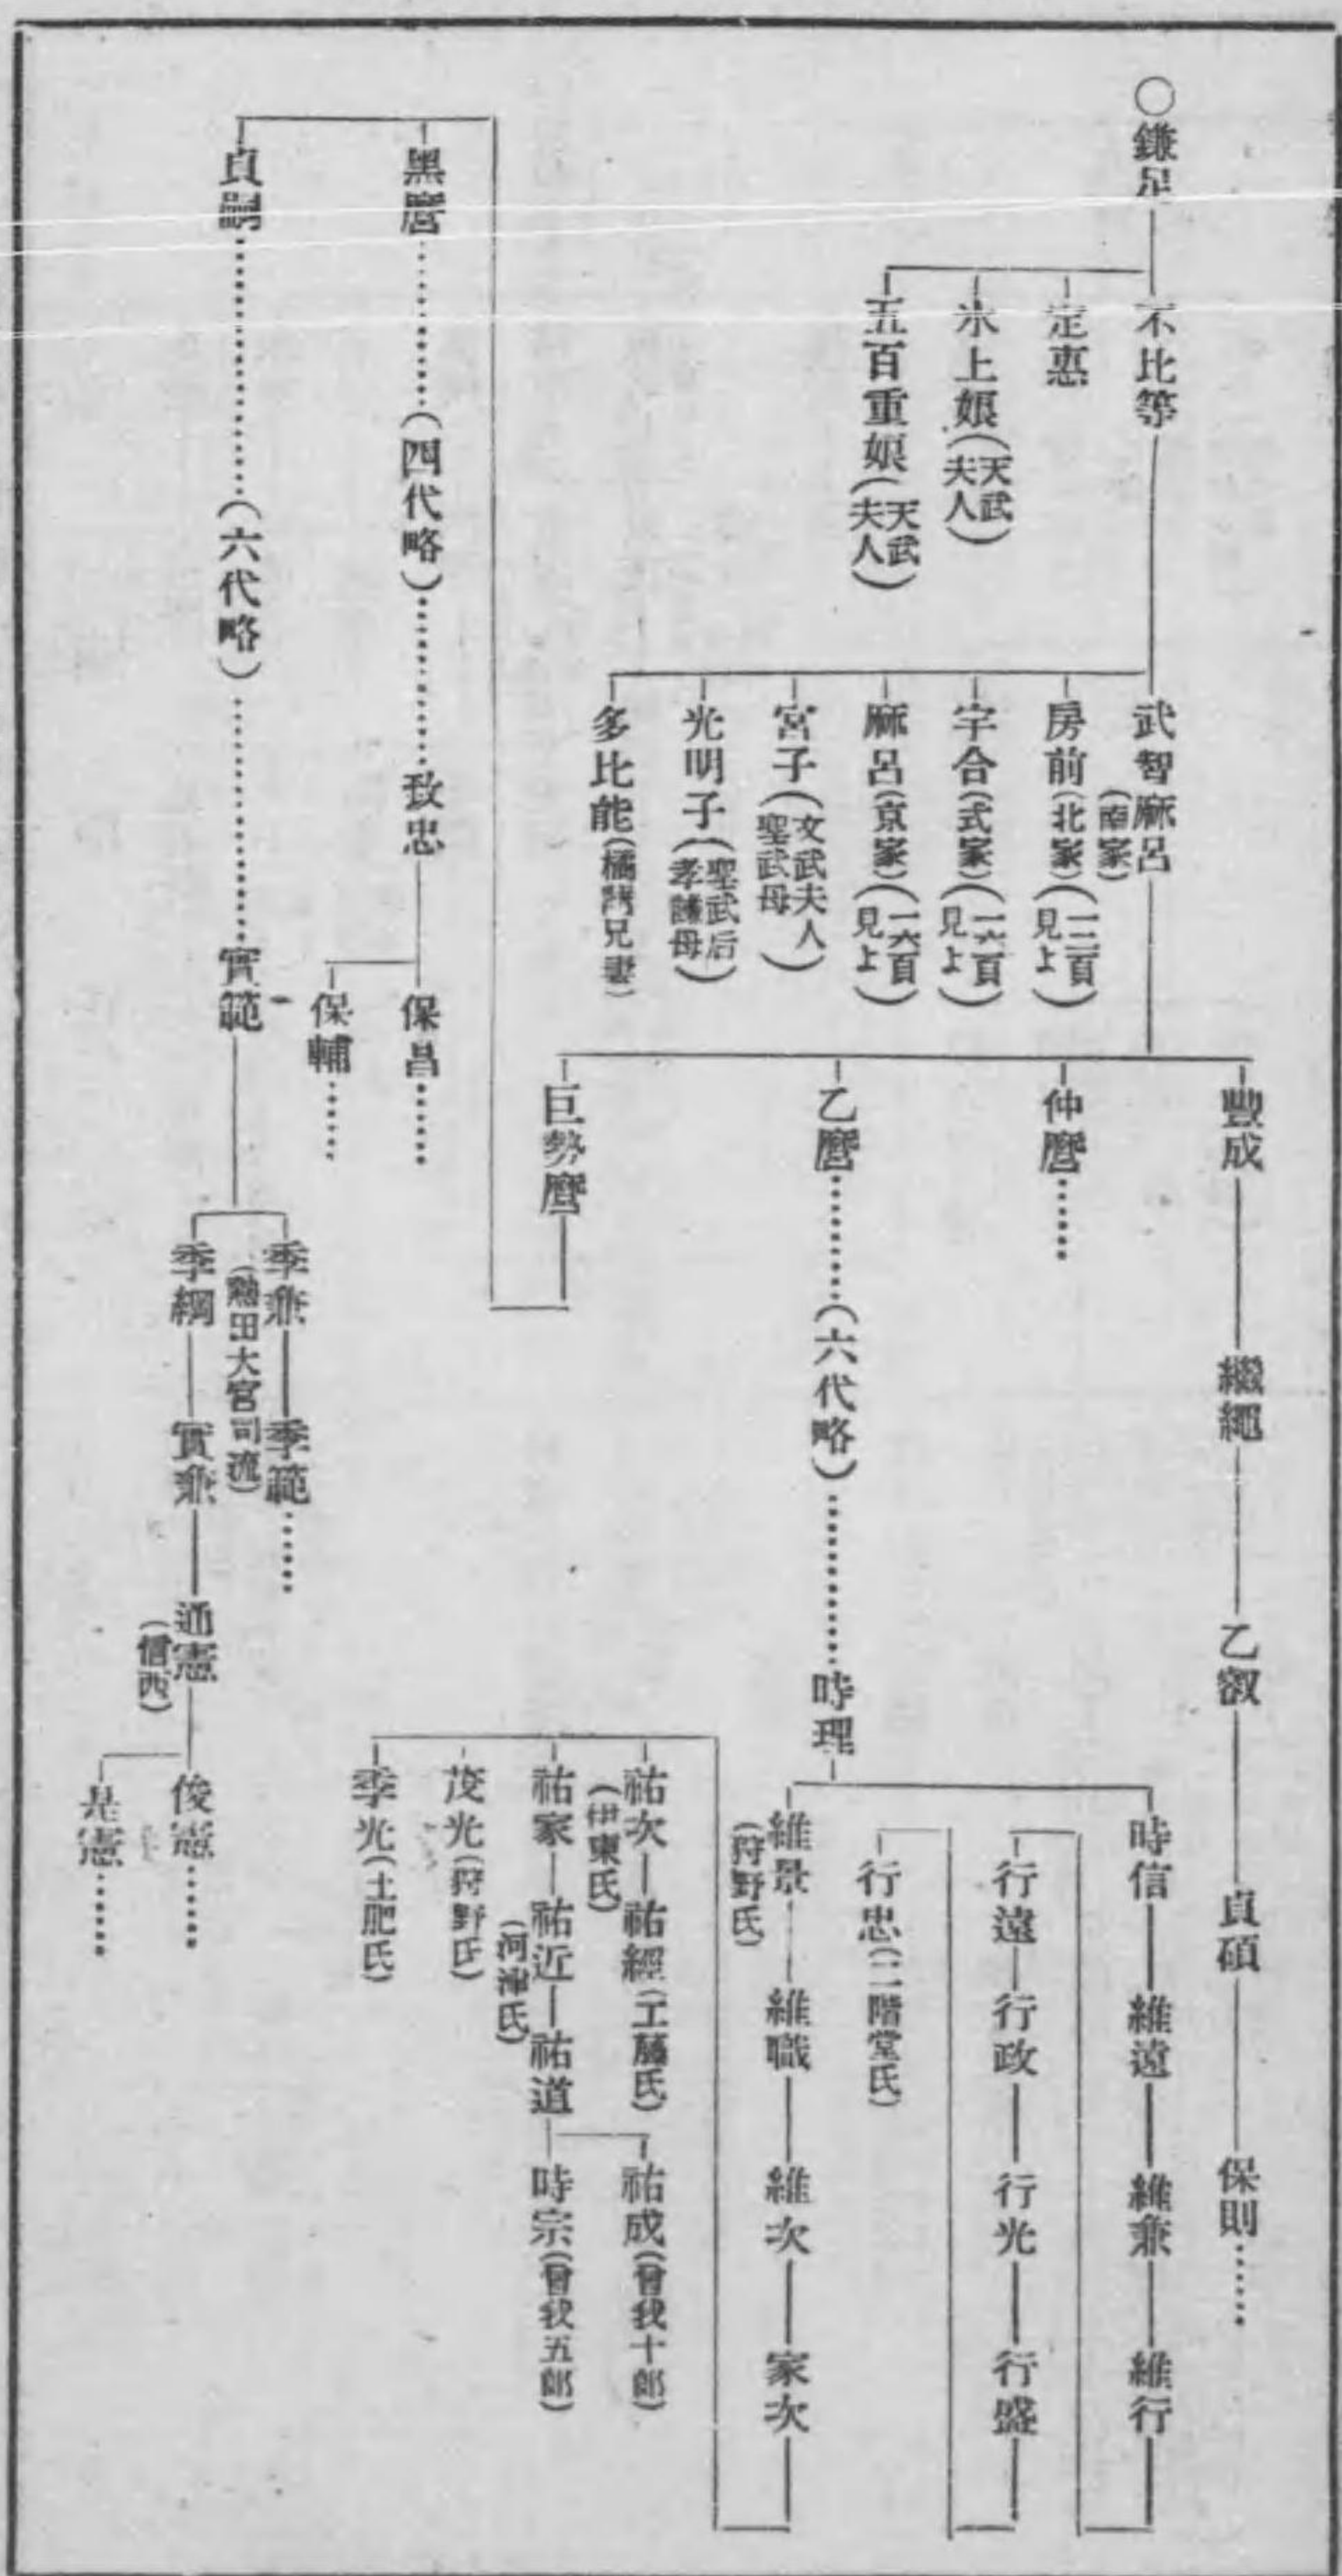 ○鎌足
不比等
定惠
氷上娘（天武夫人）
五百重娘（天武夫人）
武智麻呂（南家）
房前（北家）（一二頁見上）
宇合（式家）（一六頁見上）
麻呂（京家）（一六頁見上）
宮子（文武夫人聖武母）
光明子（聖武后孝謙母）
多比能（橘諸兄妻）
豐成
繼繩
乙叡
貞碩
保則……
仲麿……
乙麿………（六代略）…………時理
時信
維遠
維兼
維行
行遠
行政
行光
行盛
行忠（二階堂氏）
維景（狩野氏）
維職
維次
家次
祐次（伊東氏）
祐經（工藤氏）
祐家
祐近（河津氏）
祐道
祐成（曾我十郎）
時宗（曾我五郎）
茂光（狩野氏）
季光（土肥氏）
巨勢麿
黑麿…………（四代略）…………致忠
保昌……
保輔……
貞嗣………………（六代略）………………實範
季兼（熱田大宮司流）
季範……
季綱
實兼
通憲（信西）
俊憲……
是憲……